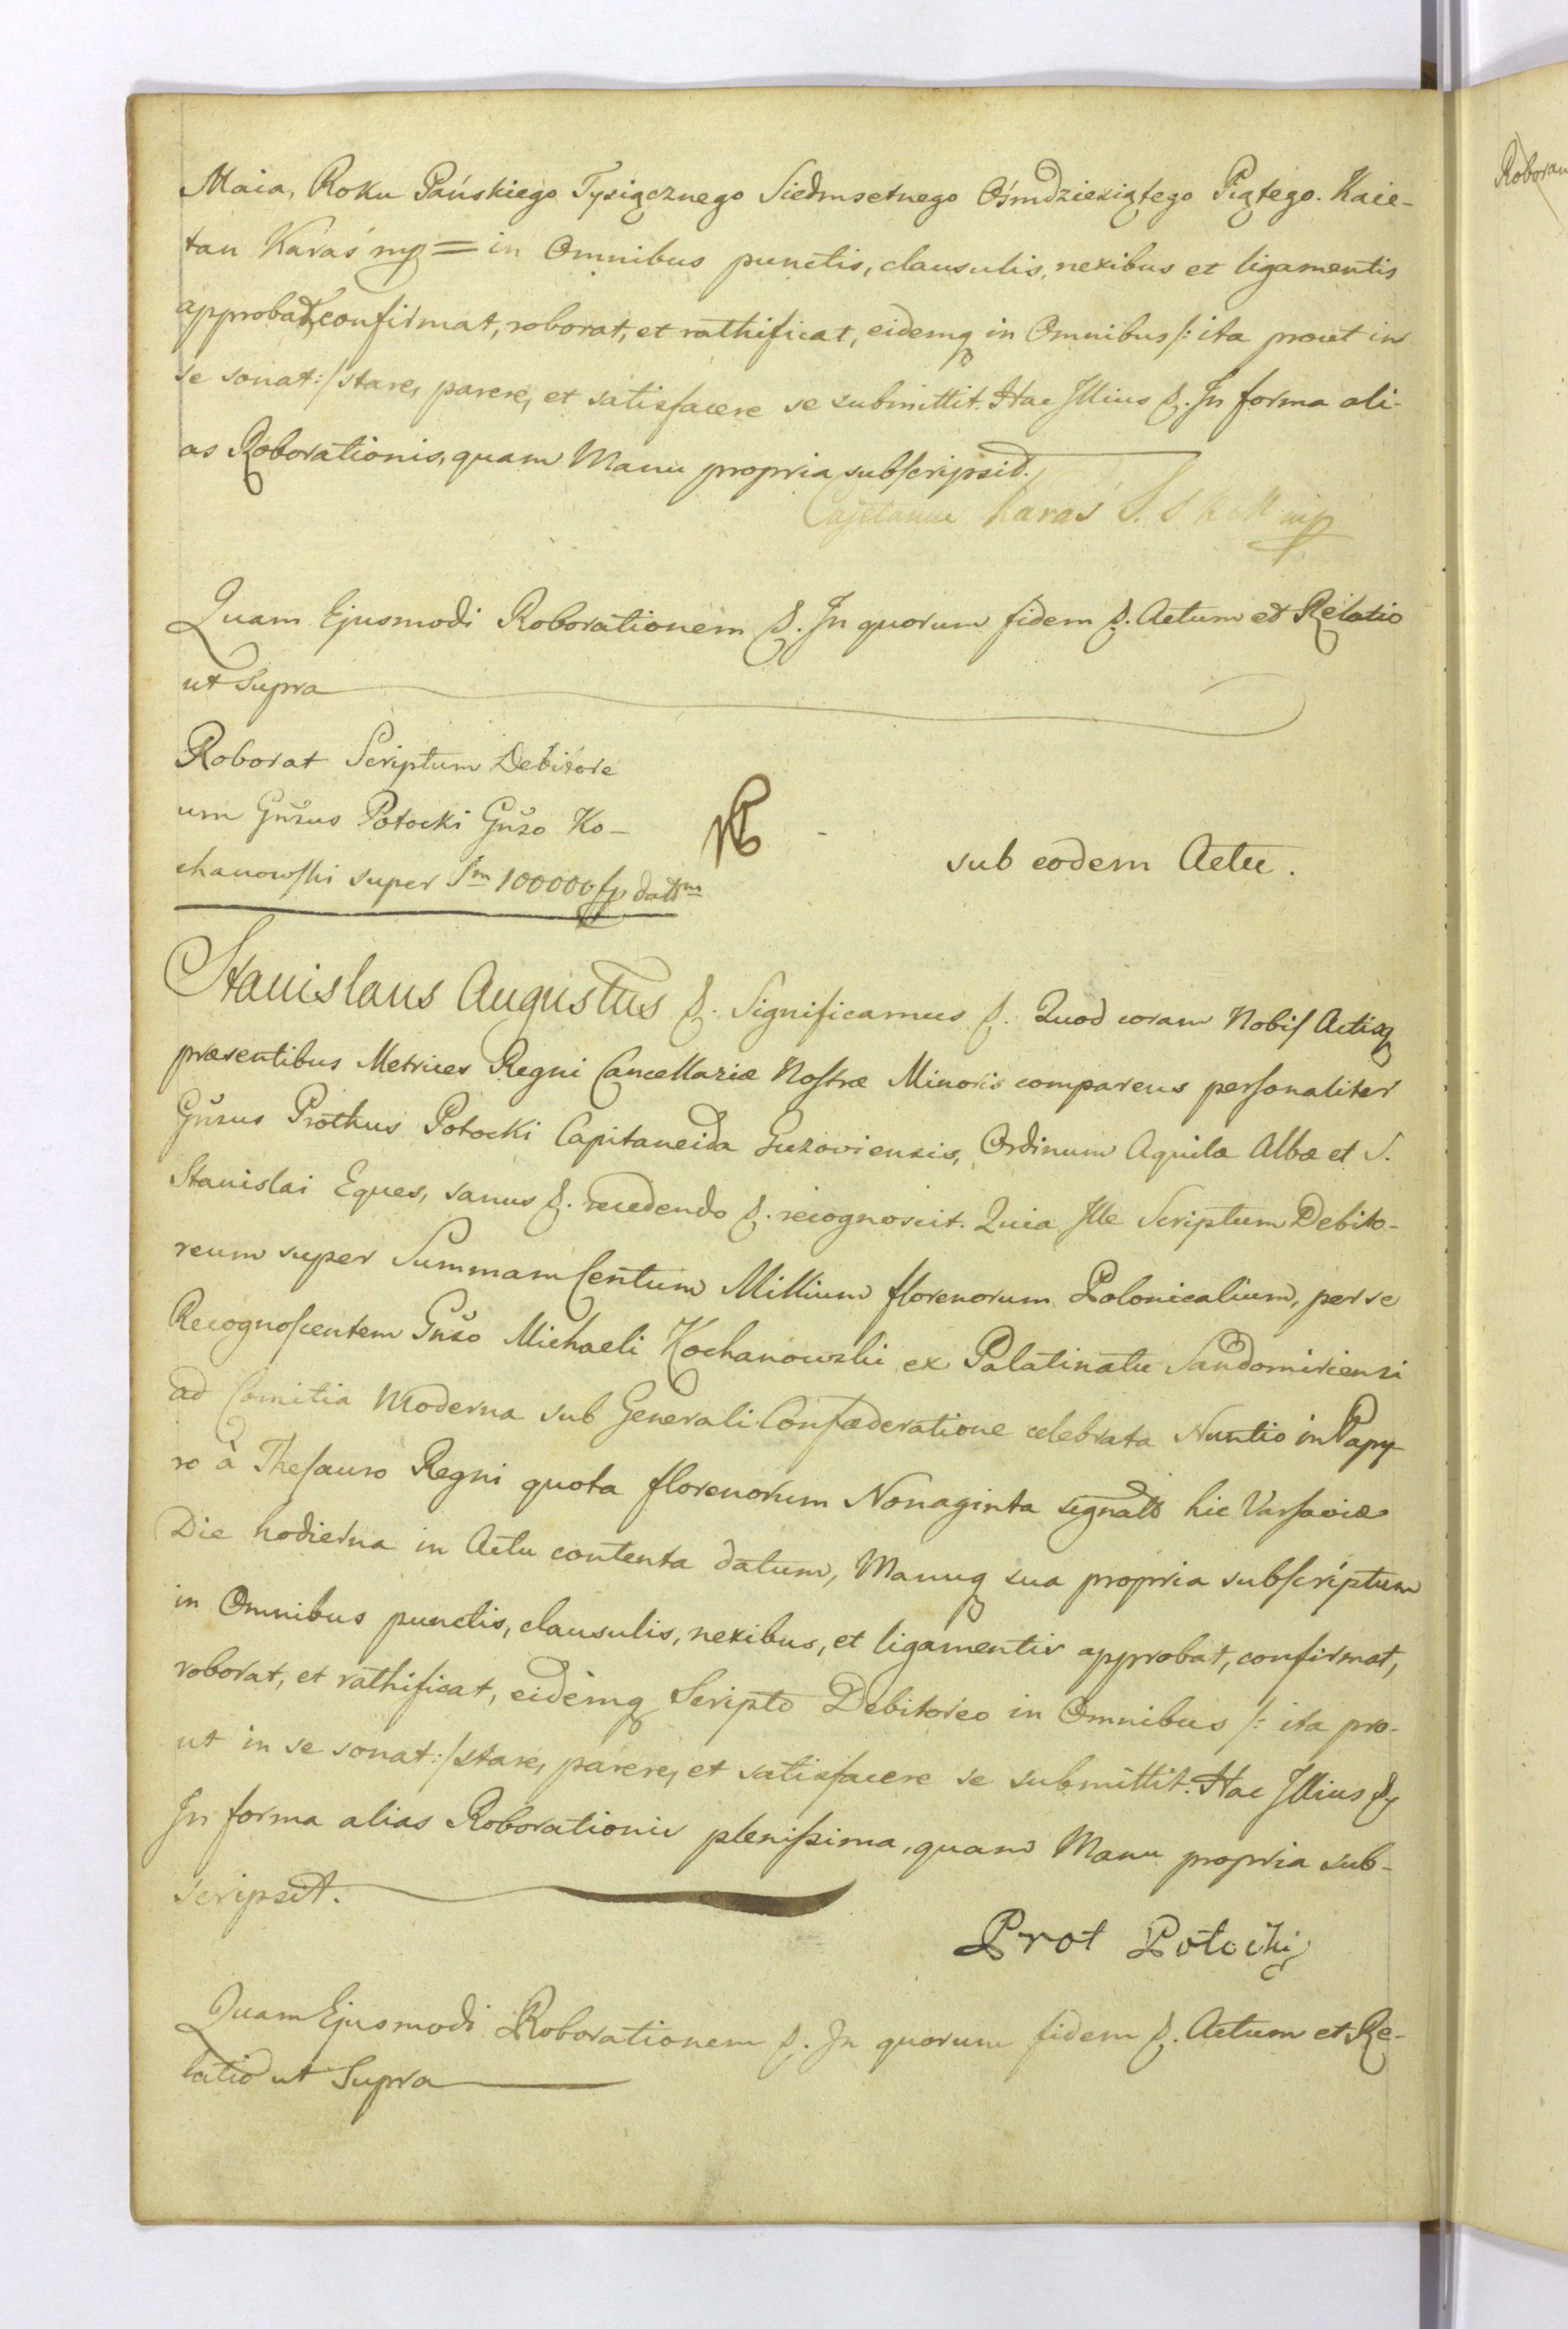 Maia, Roku Pańskiego Tysiącznego Siedmsetnego Ośmdziesiątego Piątego. Kaie-
tan Karaś mp = in Omnibus punctis, clausulis, nexibus et ligamentis
approbat, confirmat, roborat, et rathificat, eidemq in Omnibus /: ita prout in
se sonat :/ stare, parere, et satisfacere se submittit. Hac Illius &. In forma ali-
as Roborationis, quam Manu propria subscripsit.
Cajetanus Karaś mp
Quam Ejusmodi Roborationem &. In quorum fidem &. Actum et Relatio
ut Supra
Roborat Scriptum Debitore
um Gnšus Potocki Gnšo Ko-
chanowski super Sm 100000 fp datt m
sub eodem Actu.
Stanislaus Augustus &. Significamus &. Quod coram Nobis Actisq
præsentibus Metrices Regni Cancellariæ Nostræ Minoris comparens personaliter
Gnšus Prothus Potocki Capitaneida Guzoviensis, Ordinum Aquilæ Albæ et S.
Stanislai Eques, sanus &. recedendo &. recognoscit. Quia Ille Scriptum Debito-
reum super Summam Centum Millium florenorum Polonicalium, per se
Recognoscentem Gnšo Michaeli Kochanowski ex Palatinatu Sandomiriensi
ad Comitia Moderna sub Generali Confæderatione celebrata Nuntio in Papy-
ro à Thesauro Regni quota florenorum Nonaginta segnatto hic Varsaviæ
Die hodierna in Actu contenta datum, Manuq sua propria subscriptum
in Omnibus punctis, clausulis, nexibus, et ligamentis approbat, confirmat,
roborat, et rathificat, eidemq Scripto Debitoreo in Omnibus /: ita pro-
ut in se sonat :/ stare, parere, et satisfacere se submittit. Hac Illius &
In forma alias Roborationis plenissima, quam Manu propria sub-
scripsit.
Prot Potocki
Quam Ejusmodi Roborationem &. In quorum fidem &. Actum et Re-
latio ut Supra